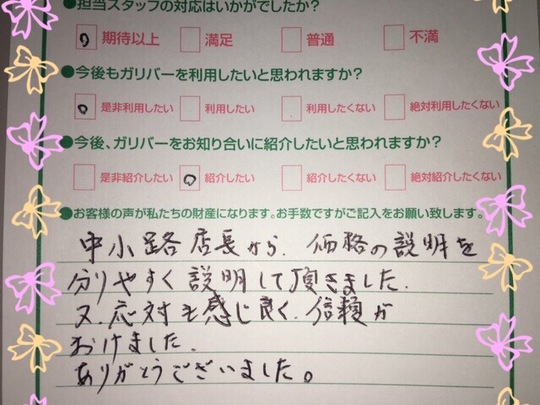 ●担当スタッフの対応はいかがでしたか?
期待以上 満足 普通 不満
●今後もガリバーを利用したいと思われますか?
是非利用したい 利用したい 利用したくない 絶対利用したくない
●今後、ガリバーをお知り合いに紹介したいと思われますか?
是非紹介したい 紹介したい 紹介したくない 絶対紹介したくない
●お客様の声が私たちの財産になります。お手数ですがご記入をお願い致します。
中小路店長から、価格の説明を
分りやすく説明して頂きました.
又、応対も感じ良く、信頼が
おけました.
ありがとうございました。